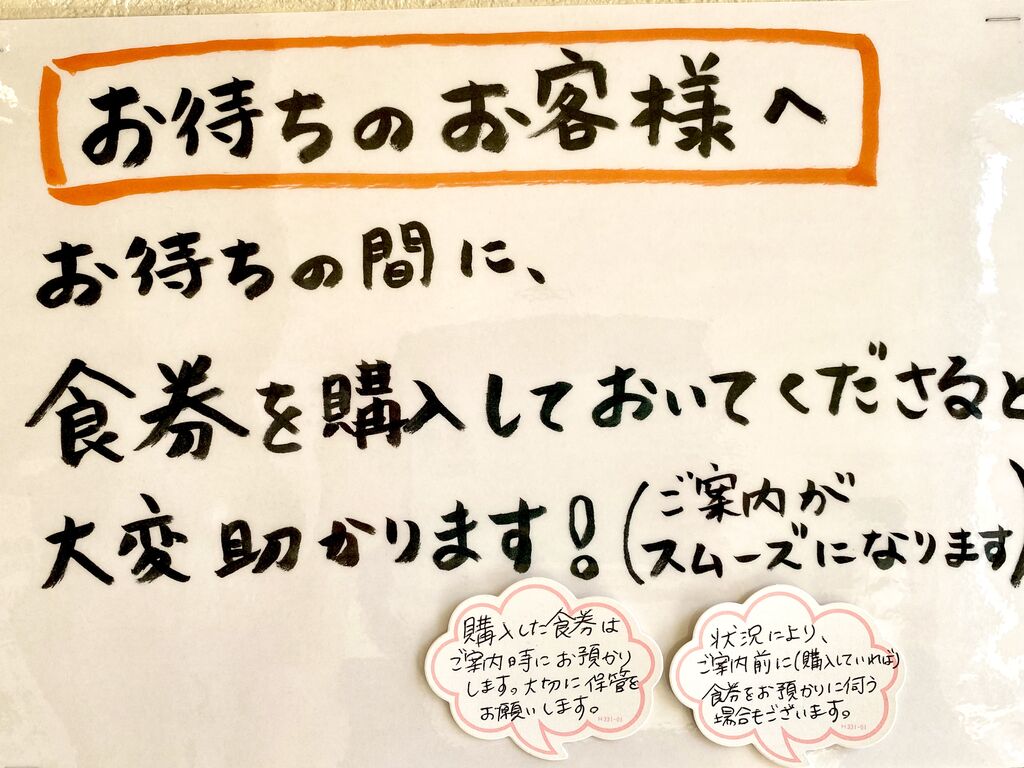 お待ちのお客様へ
お待ちの間に、
食券を購入しておいてくださると
大変助かります!
(ご案内が
スムーズになります)
購入した食券は
ご案内時にお預かり
します。大切に保管を
お願いします。
N331-01
状況により、
ご案内前に(購入していれば)
食券をお預かりに伺う
場合もございます。
N331-01